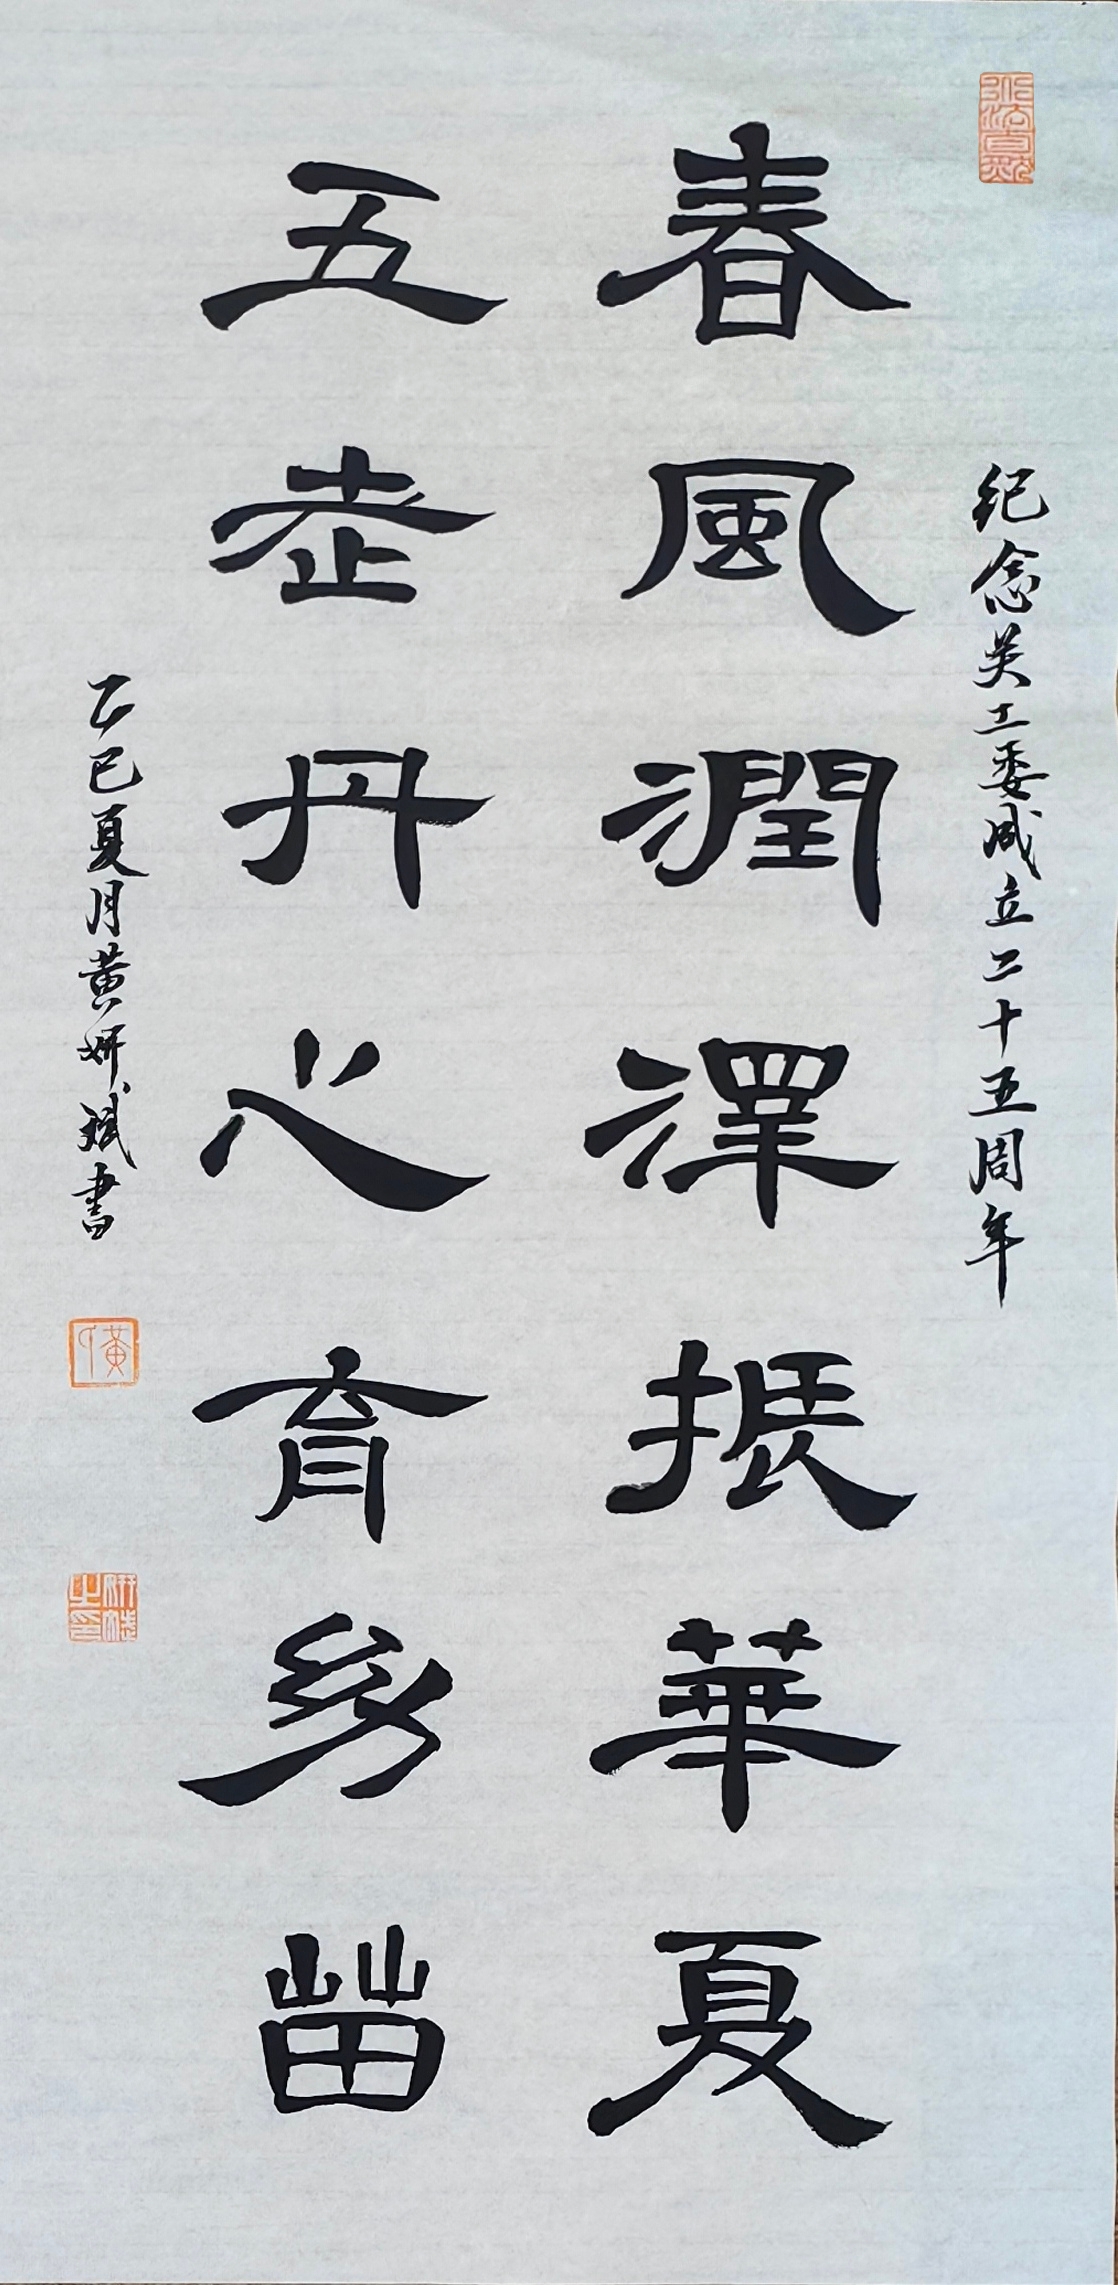 纪念关工委成立二十五周年
春風潤澤振華夏
五老丹心育幼苗
乙巳夏月黄妍斌書